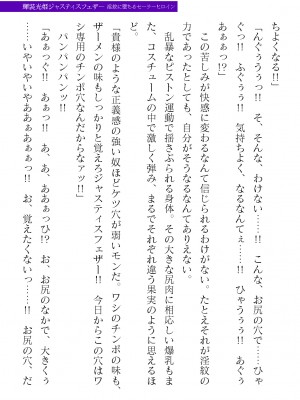 輝装光姫ジャスティスフェザー 淫欲に堕ちるセーラーヒロイン
ちよくなる!!」
「んぐぅうっ!! そ、そんな、わけない……!! こんな、お尻の穴で……ひゃ
ぐっ!! ふぐぅぅ!! 気持ちよく、なるなんてぇ……!! ひゃうぅぅ!! あぐぅ
あぁっっ!?」
この苦しみが快感に変わるなんて信じられるわけがない。たとえそれが淫紋の
力であったとしても、自分がそうなるなんてありえない。
乱暴なピストン運動で揺さぶられる身体。その大きな尻肉に相応しい爆乳もま
た、コスチュームの中で激しく弾み、まるでそれぞれ違う果実のように思えるほ
どに。
「貴様のような正義感の強い奴ほどケツ穴が弱いモンだ。ワシのチンポの味も、
ザーメンの味もしっかりと覚えろジャスティスフェザー!! 今日からこの穴はワ
シ専用のチンポ穴なんだからなァッ!!」
パンパンパンッ!!
「あぁっぐ!! あぁっ!! あ、あ、ああぁっひ!? お、お尻のなかで、大きくぅ
……いやいやいやああぁあぁぁっ!! お、覚えたくないっ……!! お尻の穴、だ